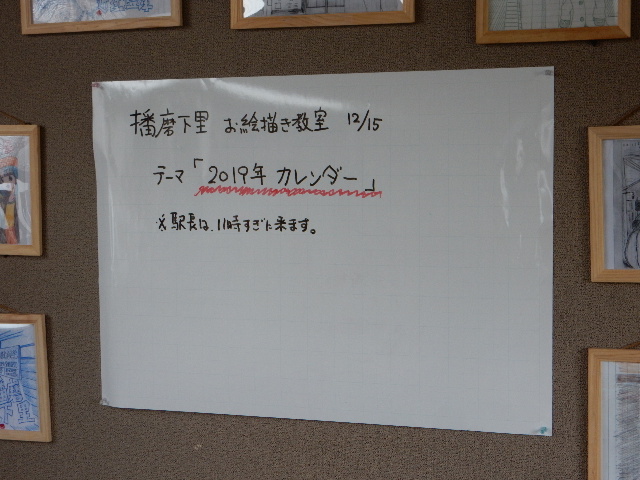 播磨下里 お絵描き教室 12/15
テーマ「2019年 カレンダー」
※駅長は、11時すぎに来ます。